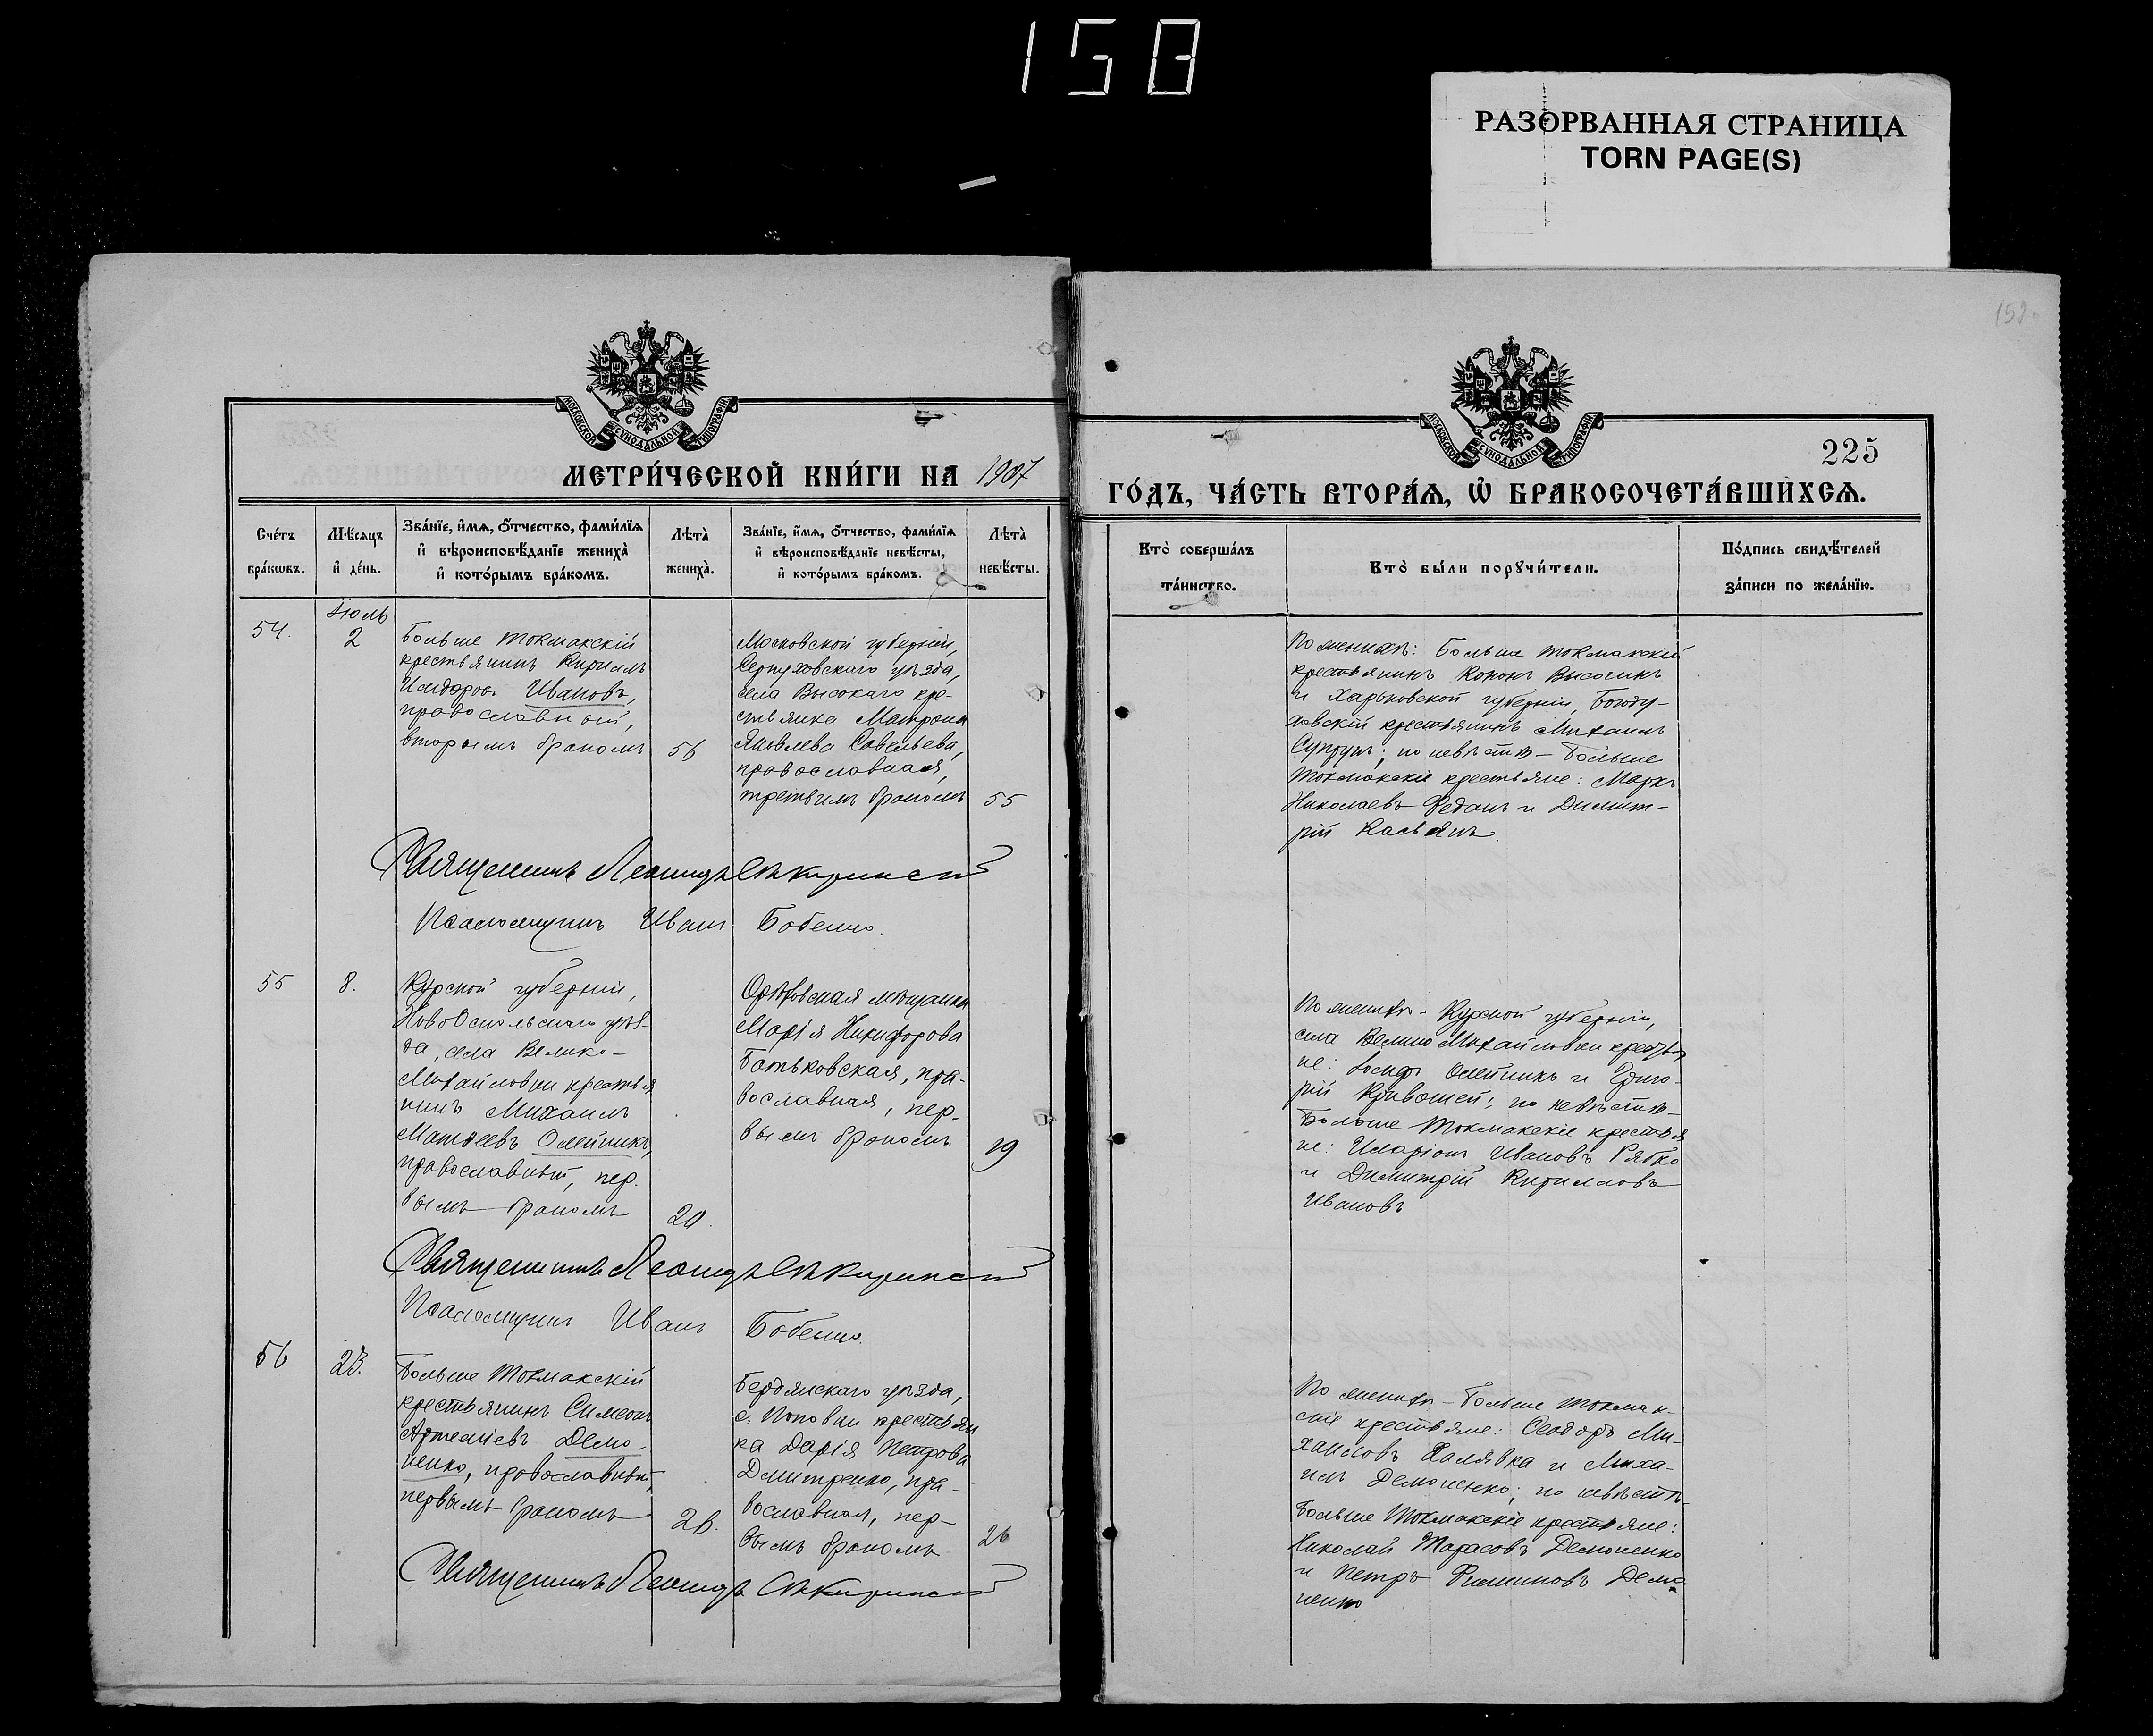 158
РАЗОРВАННАЯ СТРАНИЦА
TORN PAGE(S)
159
МОСКОВСКОЙ СѴНОДАЛЬНОЙ ТИПОГРАФІИ
МЕТРИ́ЧЕСКОЙ КНИ́ГИ НА 1907
Сче́тъ бра́кѡвъ.
Мѣ́сѧцъ и҆ де́нь.
Зва́нїе, и҆́мѧ, ѻ҆́тчество, фами́лїѧ
и҆ вѣроисповѣ́данїе жениха̀
и҆ кото́рымъ бра́комъ.
Лѣта̀ жениха̀.
Зва́нїе, и҆́мѧ, ѻ҆́тчество, фами́лїѧ
и҆ вѣроисповѣ́данїе невѣ́сты,
и҆ кото́рымъ бра́комъ.
Лѣта̀ невѣ́сты.
54.
Іюль
2
Больше Токмакскій
крестьянинъ Кириллъ
Исидоровъ Ивановъ,
православный,
вторымъ бракомъ
56
Московской губерніи,
Серпуховскаго уѣзда,
села Высокаго кре-
стьянка Матрона
Яковлева Савельева,
православная,
третьимъ бракомъ
55
Священникъ Леонидъ
Псаломщикъ Иванъ Бобенко.
55
8.
Курской губерніи,
НовоОскольскаго уѣз-
да, села Велико-
Михайловки крестья
нинъ Михаилъ
Матѳеевъ Олейникъ,
православный, пер.
вымъ бракомъ
20.
Орѣховская мѣщанка
Марія Никифорова
Батьковская, пра-
вославная, пер-
вымъ бракомъ
19
Священникъ Леонидъ
Псаломщикъ Иванъ Бобенко.
56
23.
Больше Токмакскій
крестьянинъ Симеонъ
Артеміевъ Демо-
ненко, православный,
первымъ бракомъ
26.
Бердянскаго уѣзда,
с. Поповки крестьян
ка Дарія Петрова
Дмитренко, пра-
вославная, пер-
вымъ бракомъ
26
Священникъ Леонидъ
МОСКОВСКОЙ СѴНОДАЛЬНОЙ ТИПОГРАФІИ
225
ГО́ДЪ, ЧА́СТЬ ВТОРА́Ѧ, Ѽ БРАКОСОЧЕТА́ВШИХСѦ.
Кто̀ соверша́лъ
та́инство.
Кто̀ бы́ли порꙋчи́тели.
По́дпись свидѣ́телей
за́писи по жела́нїю.
По женихѣ: Больше Токмакскій
крестьянинъ Кононъ Высочинъ
и Харьковской губерніи, Богоду-
ховскій крестьянинъ Михаилъ
Супрунъ; по невѣстѣ – Больше
Токмакскіе крестьяне: Маркъ
Николаевъ Феданъ и Димит-
рій Касьянъ.
По женихѣ – Курской губерніи,
села ВеликоМихайловки крестья
не: Іосифъ Олейникъ и Григо-
рій Кривошей; по невѣстѣ –
Больше Токмакскіе крестья
не: Иларіонъ Ивановъ Рябко
и Димитрій Кирилловъ
Ивановъ
По женихѣ – Больше Токмак-
скіе крестьяне: Ѳеодоръ Ми-
хаиловъ Халявка и Миха-
илъ Демоненко; по невѣстѣ –
Больше Токмакскіе крестьяне:
Николай Тарасовъ Демоненко
и Петръ Филиповъ Демо-
ненко